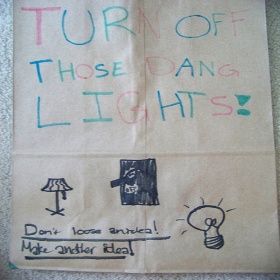 TURN OFF
THOSE DANG
LIGHTS!
Don't loose an idea!
Make another idea!